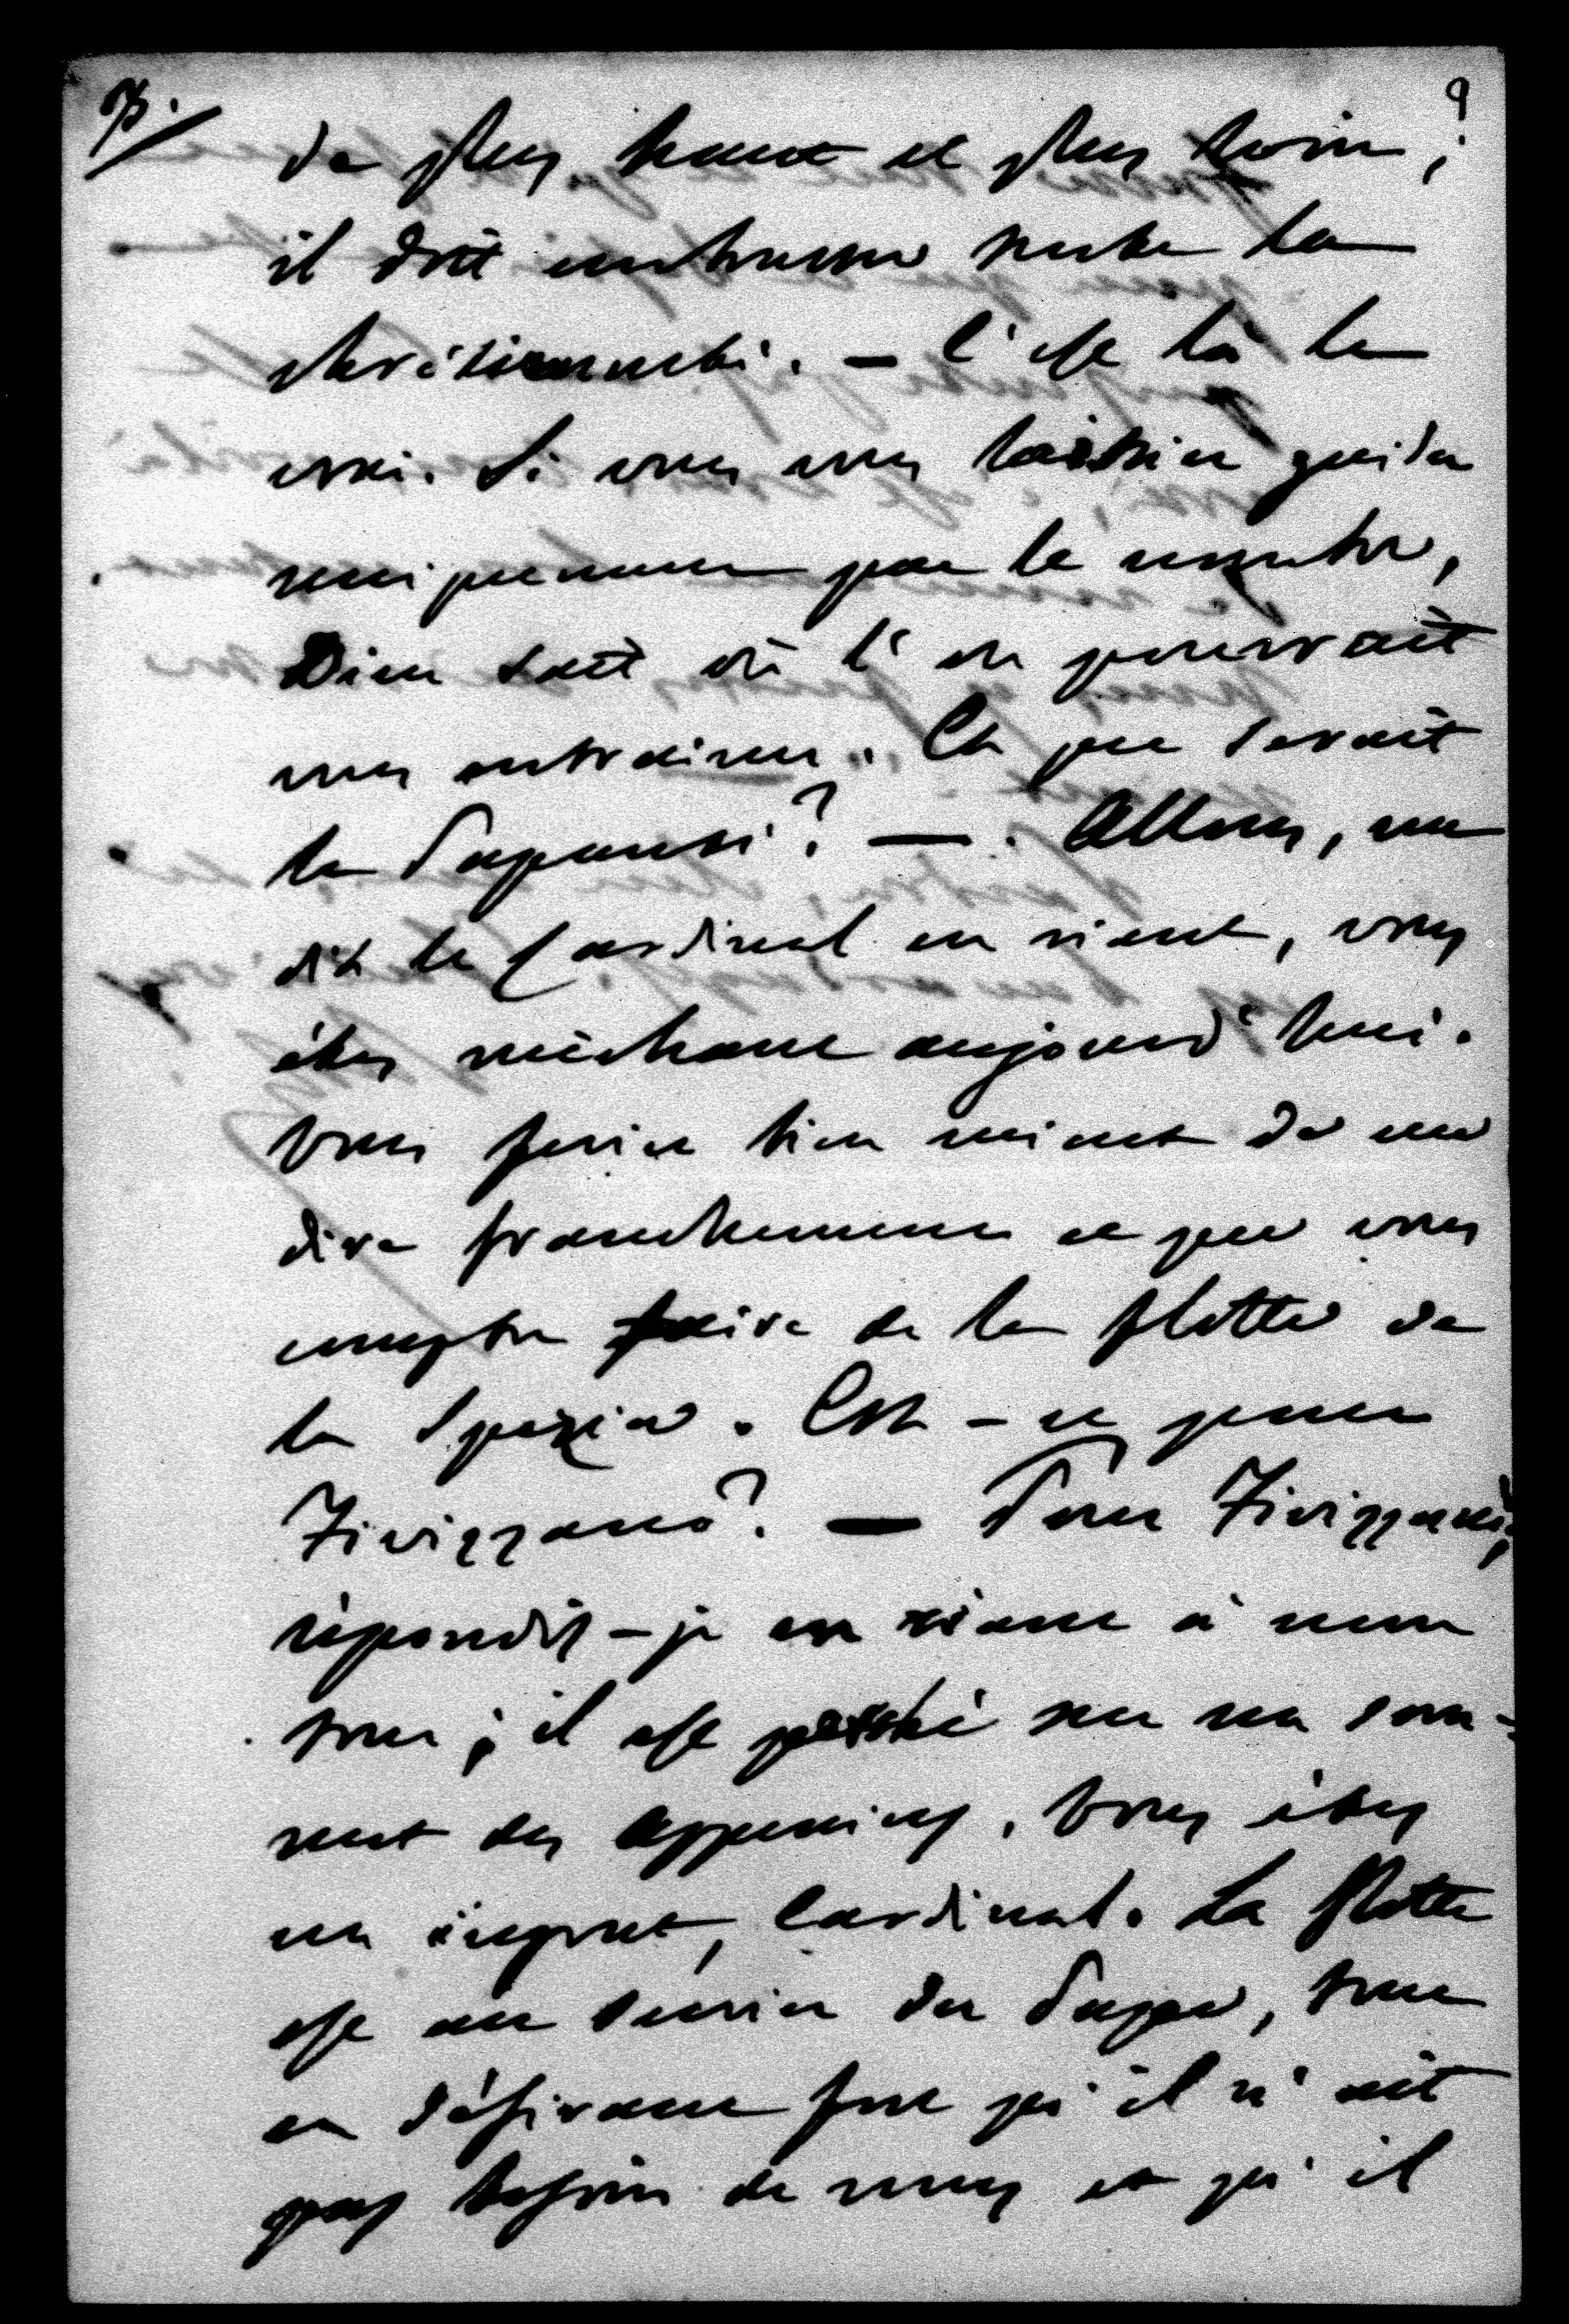 7. 9
de plus haut et plus loin ;
il doit embrasser toute la
chrétienneté. — C'est là le
vrai. Si vous vous laissiez guider
uniquement par le nombre,
Dieu sait où l'on pourrait
vous entrainer. Et que serait
la Papauté ? — Allons, me
dit le Cardinal en riant, vous
êtes méchant aujourd'hui.
Vous feriez bien mieux de me
dire franchement ce que vous
comptez faire de la flotte de
la Spezia. Est-ce pour
Fivizzano ? — Pour Fivizzano,
répondis-je en riant à mon
tour ; il est perché sur un som-
met des Appenins. Vous êtes
un ingrat, Cardinal. La flotte
est au service du Pape, tout
en désirant fort qu'il n'ait
pas besoin de nous et qu'il